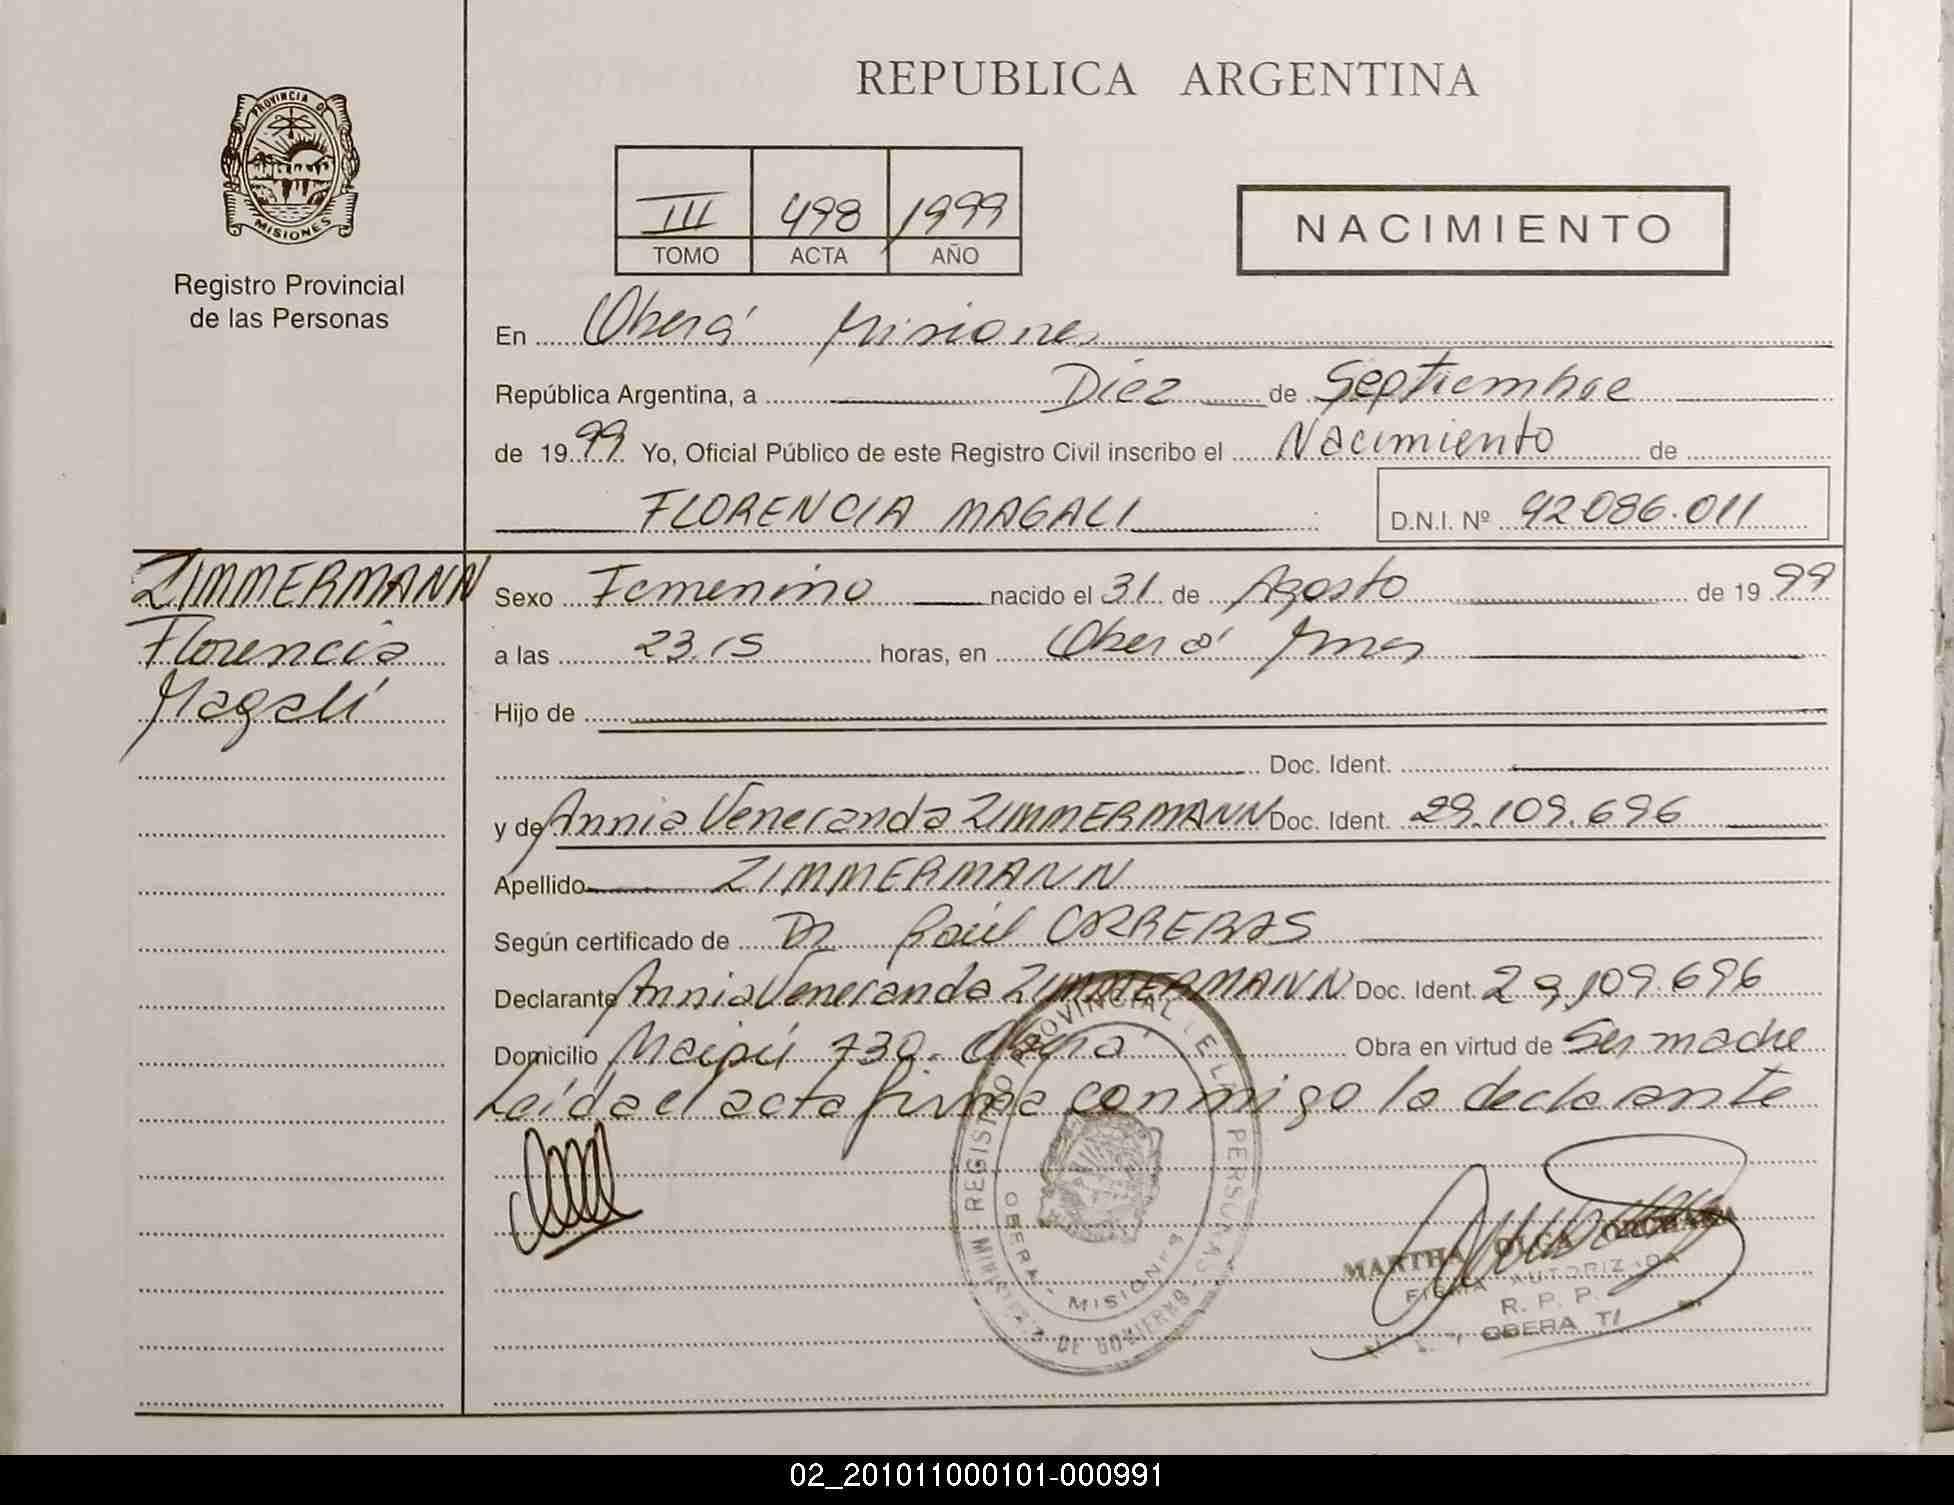 REPUBLICA ARGENTINA
PROVINCIA DE
MISIONES
Registro Provincial
de las Personas
III 498 1999
TOMO ACTA AÑO
NACIMIENTO
En Oberá Misiones
República Argentina, a Diez de Septiembre
de 1999 Yo, Oficial Público de este Registro Civil inscribo el Nacimiento de
FLORENCIA MAGALI D.N.I. Nº 42086.011
ZIMMERMANN
Florencia
Magalí
Sexo Femenino nacido el 31 de Agosto de 1999
a las 23.15 horas, en Oberá Mnes
Hijo de
Doc. Ident.
y de Annia Veneranda ZIMMERMANN Doc. Ident. 29.109.696
Apellido ZIMMERMANN
Según certificado de Dr Raúl CARRERAS
Declarante Annia Veneranda ZIMMERMANN Doc. Ident. 29.109.696
Domicilio Maipú 730. Oberá Obra en virtud de Ser madre
Leída el acta firma conmigo la declarante
REGISTRO PROVINCIAL DE LAS PERSONAS
OBERA - MISIONES
MINISTERIO DE GOBIERNO
MARTHA OLGA
FIRMA AUTORIZADA
R. P. P.
OBERA
02_201011000101-000991